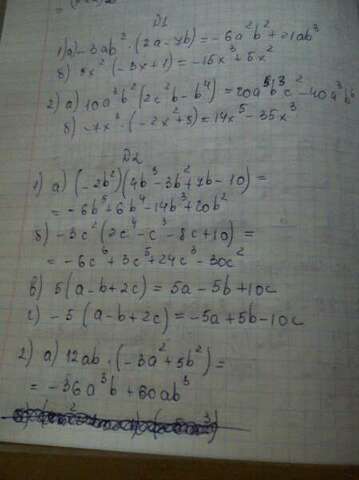 D1
1) а) -3ab² · (2a - 7b) = -6a²b² + 21ab³
б) 5x² (-3x + 1) = -15x³ + 5x²
2) а) 10a³b² (2c²b - b⁴) = 20a³b³c² - 10a³b⁶
б) -7x³ · (-2x² + 5) = 14x⁵ - 35x³
D2
1) а) (-2b²)(4b³ - 3b² + 7b - 10) =
= -6b⁵ + 6b⁴ - 14b³ + 20b²
б) -3c² (2c⁴ - c³ - 8c + 10) =
= -6c⁶ + 3c⁵ + 24c³ - 30c²
в) 5 (a - b + 2c) = 5a - 5b + 10c
г) -5 (a - b + 2c) = -5a + 5b - 10c
2) а) 12ab · (-3a² + 5b²) =
= -36a³b + 60ab³